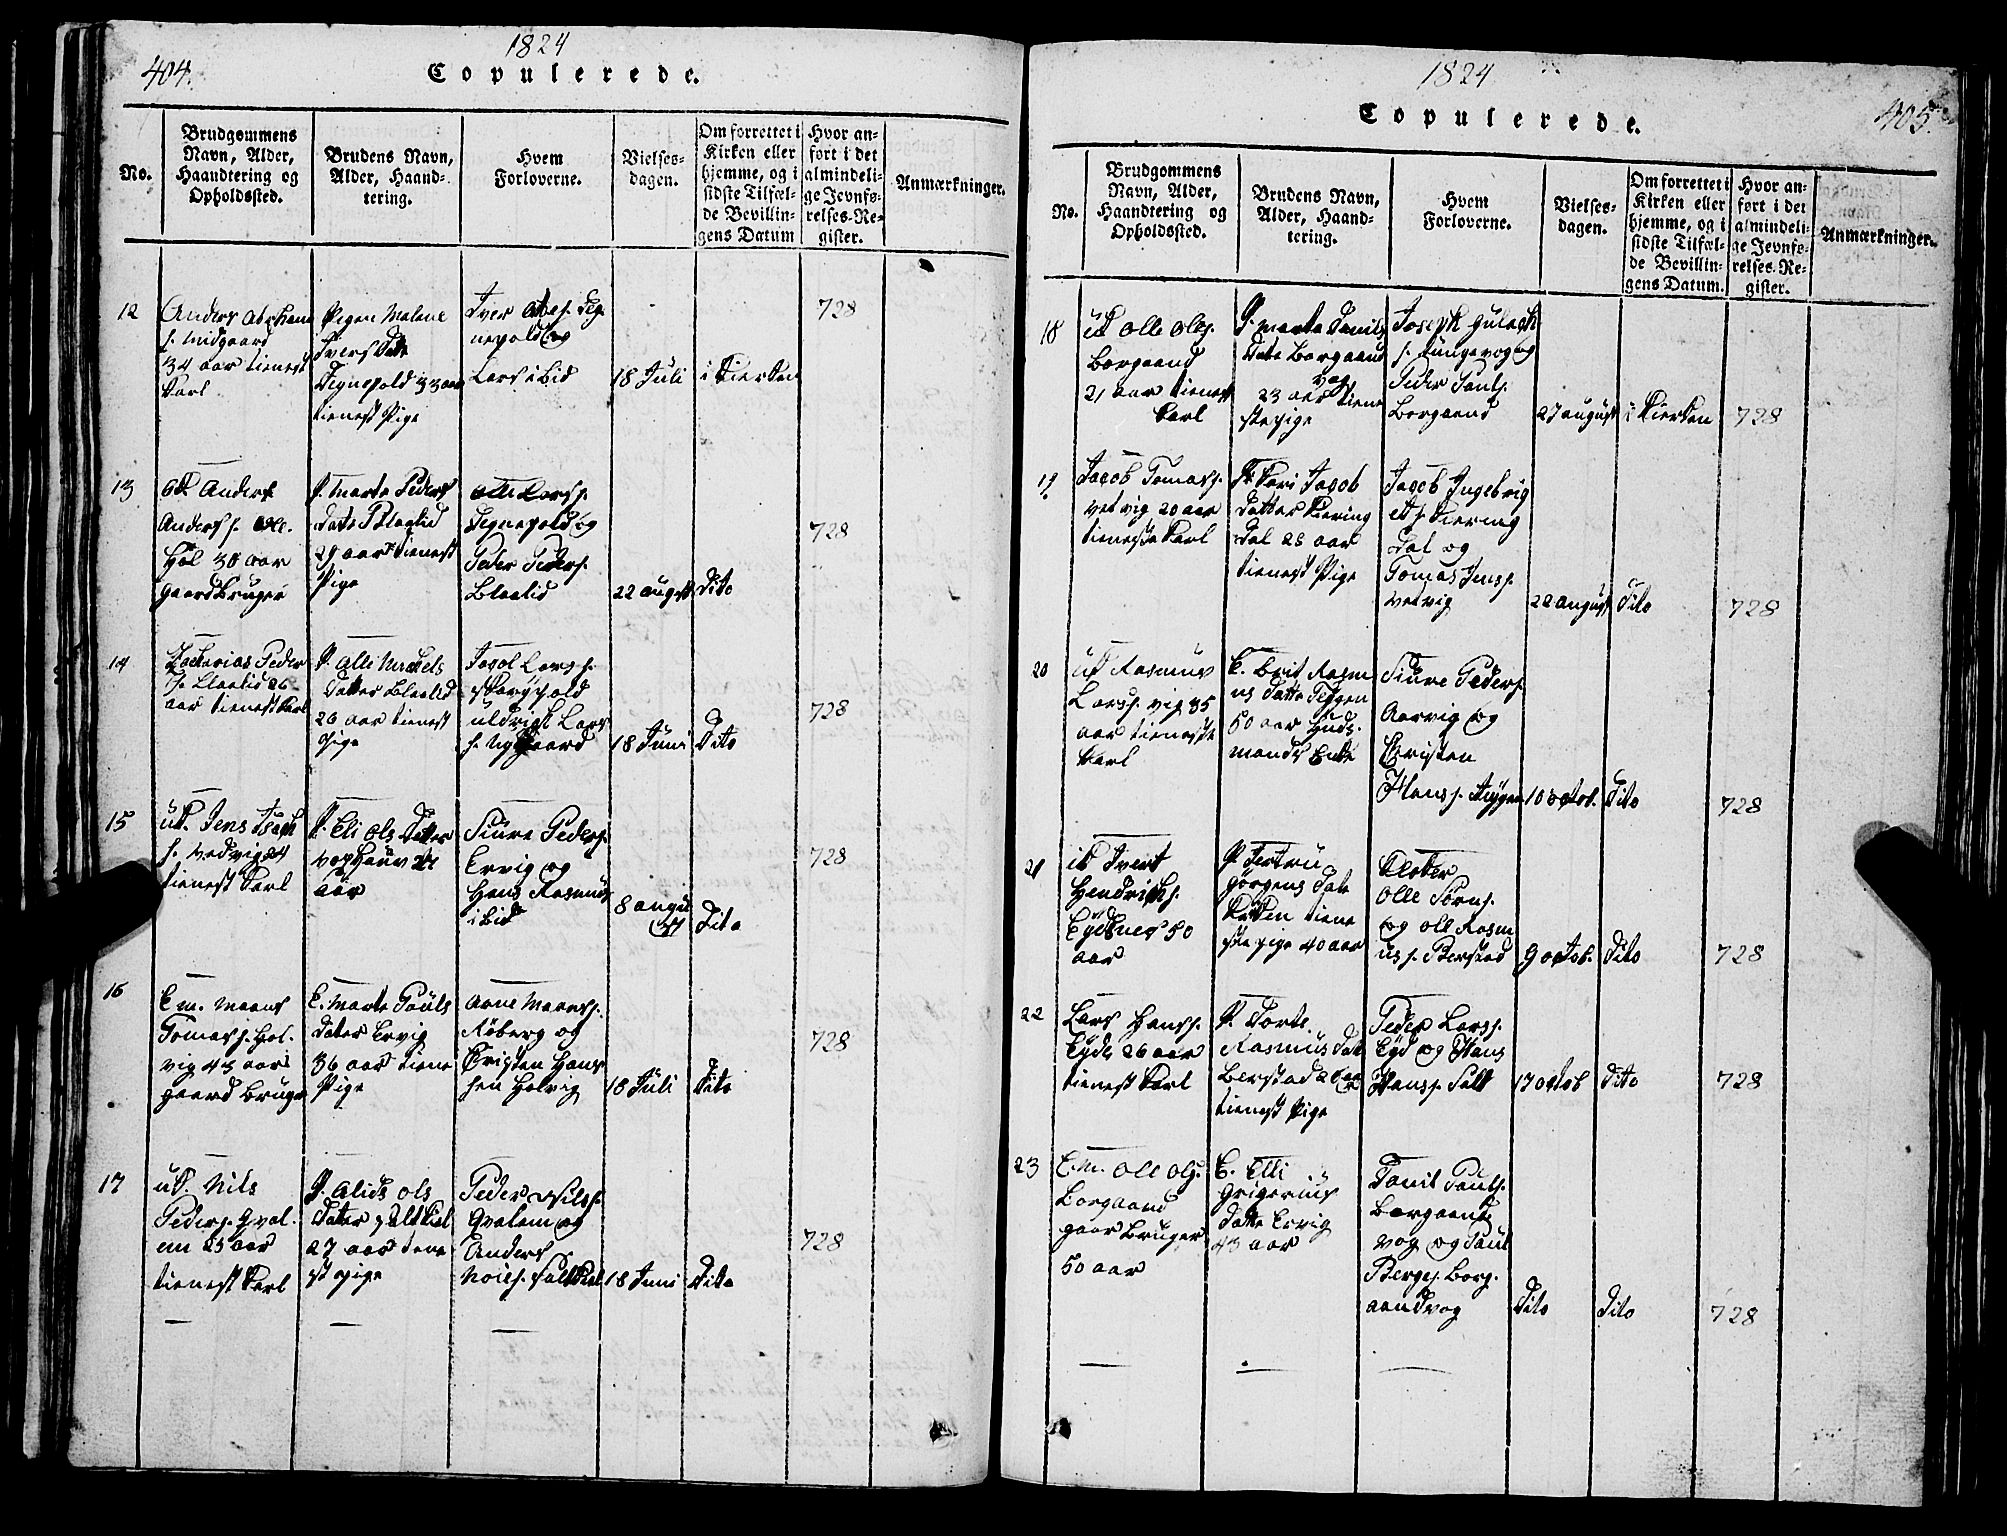 404.
1824
Copulerede.
No.
Brudgommens
Navn, Alder,
Haandtering og
Opholdssted.
Brudens Navn,
Alder, Haand-
tering.
Hvem
Forloverne.
Vielses-
dagen.
Om forrettet i
Kirken eller
hjemme, og i
sidste Tilfæl-
de Bevillin-
gens Datum
Hvor an-
ført i det
almindeli-
ge Jevnfø-
relses-Re-
gister.
Anmærkninger.
12
Anders
s. Midgaard
34 aar tienest
Karl
Pigen Malene
Ivers Datt
Tegnepold 33 aar
tienest Pige
Iver
nepold og
Lars ibid
18 Juli
i Kierken
728
13
Anders
Anders s.
Hol 30 aar
gaard Bruger
P. Marte Peders
Date Blaalid
29 aar tienest
Pige
Olle Lars s.
Tegnepold og
Peder Peders.
Blaalid
22 august
Dito
728
14
Zackarias Peder
s. Blaalid 26
aar tienest Karl
P.
Datter Blaalid
26 aar tienest
Pige
Lars s.
Lars
s. Nygaard
18 Juni
Dito
728
15
Uk. Jens
s.
tienest Karl
P. Eli Ols Datter
aar
Siure Peders.
Ervig og
Hans Rasmus
ibid
8 augu
st
Dito
728
16
E. m. Maans
Tomas s. Hol-
vig 43 aar
gaard Bruger
E. Marte Pouls
Dater Ervig
36 aar tiene
Pige
Arne Maans s.
Røberg og
Cristen Hans
sen Holvig
18 Juli
Dito
728
17
Uk. Nils
Peders. Hval-
em 25 aar
tienest Karl
P. Alids Ols
Dater
27 aar tiene
st pige
Peder Nils s.
Hvalem og
Anders
18 Juni
Dito
728
1824
405.
Copulerede.
No.
Brudgommens
Navn, Alder,
Haandtering og
Opholdssted.
Brudens Navn,
Alder, Haand-
tering.
Hvem
Forloverne.
Vielses-
dagen.
Om forrettet i
Kirken eller
hjemme, og i
sidste Tilfæl-
de Bevillin-
gens Datum.
Hvor an-
ført i det
almindeli-
ge Jevnfø-
relses-Re-
gister.
Anmærkninger.
18
Uk Olle Ols.
Borgaand
21 aar tienest
Karl
P. Marta Danils
Date Borgaand
vog
23 aar tiene
ste pige
Joseph
s. og
Peder Pouls.
Borgaand
27 august
i Kierken
728
19
Jacob Tomas s.
Vetvig 20 aar
tieneste Karl
P. Kari Jacob
Datter Kiering
Dal 25 aar
tienest Pige
Jacob Ingebrig
et s. Kiering
Dal og
Tomas Jens s.
Vetvig
22 august
Dito
728
20
Uk Rasmus
Lars s. vig 35
aar tieneste
Karl
E. Brit Rasm
us Datte
50 aar Huds-
mands Enke
Siure Peders.
Aarvig og
Christen
Hans s.
10 octob.
Dito
728
21
Hendrich s.
50
aar
P.
Jørgens Date
tiene
ste pige 40 aar
Kloker
Olle
og Oll Rasm
us s. Berstad
9 octob.
Dito
728
22
Lars Hans s.
Eyde 26 aar
tienest Karl
P. Dorte
Rasmus Dat
Berstad
tienest Pige
Peder Lars s.
Eyd og Hans
Hans s. Salt
17 octob
Dito
728
23
E. m. Oll Ols.
Borgaand
gaar Bruger
50 aar
E. Elli
Grigerius
Datte Ervig
43 aar
Danil Pouls.
Borgaand
vog og Poul
Borg-
aandvog
Dito
Dito
728